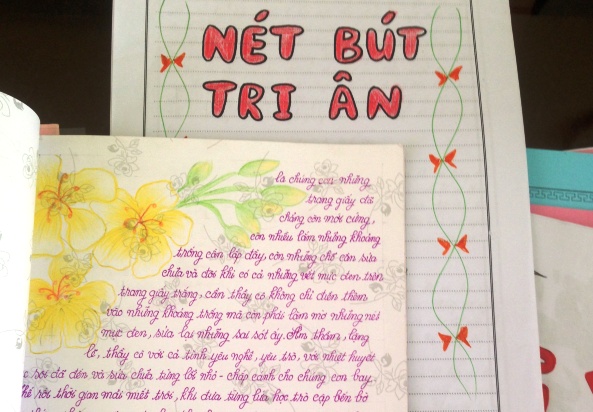 NÉT BÚT
TRI ÂN
là chúng con những
trang giấy đã
chẳng còn mới cứng,
còn nhiều lắm những khoảng
trống cần lấp đầy, còn những chỗ cần sửa
chữa và đôi khi có cả những vết mực đen trên
trang giấy trắng, cần thầy cô không chỉ điền thêm
vào những khoảng trống mà còn phải làm mờ những nét
mực đen, sửa lại những sai sót ấy. Âm thầm, lặng
lẽ, thầy cô với cả tình yêu nghề, yêu trò, với nhiệt huyết
sôi đã đến và sửa chữa từng lỗi nhỏ - chắp cánh cho chúng con bay.
rồi thời gian mải miết trôi, khi đưa từng lứa học trò cập bến bờ